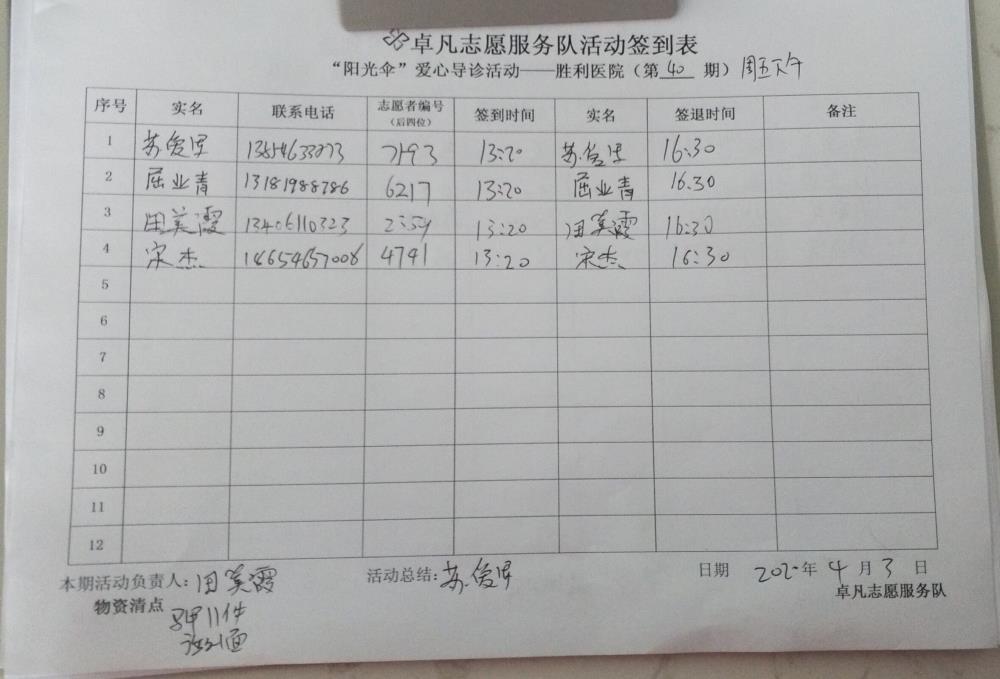 卓凡志愿服务队活动签到表
“阳光伞”爱心导诊活动——胜利医院（第 40 期）周五下午
序号 实名 联系电话 志愿者编号（后四位） 签到时间 实名 签退时间 备注
1 苏俊军 7193 13:20 苏俊军 16:30
2 屈业青 13181988786 6217 13:20 屈业青 16.30
3 田美霞 13406110323 2559 13:20 田美霞 16:30
4 宋杰 14654657006 4741 13:20 宋杰 16:30
5
6
7
8
9
10
11
12
本期活动负责人：田美霞 活动总结：苏俊军 日期 2020年 4 月 3 日
物资清点 卓凡志愿服务队
11件